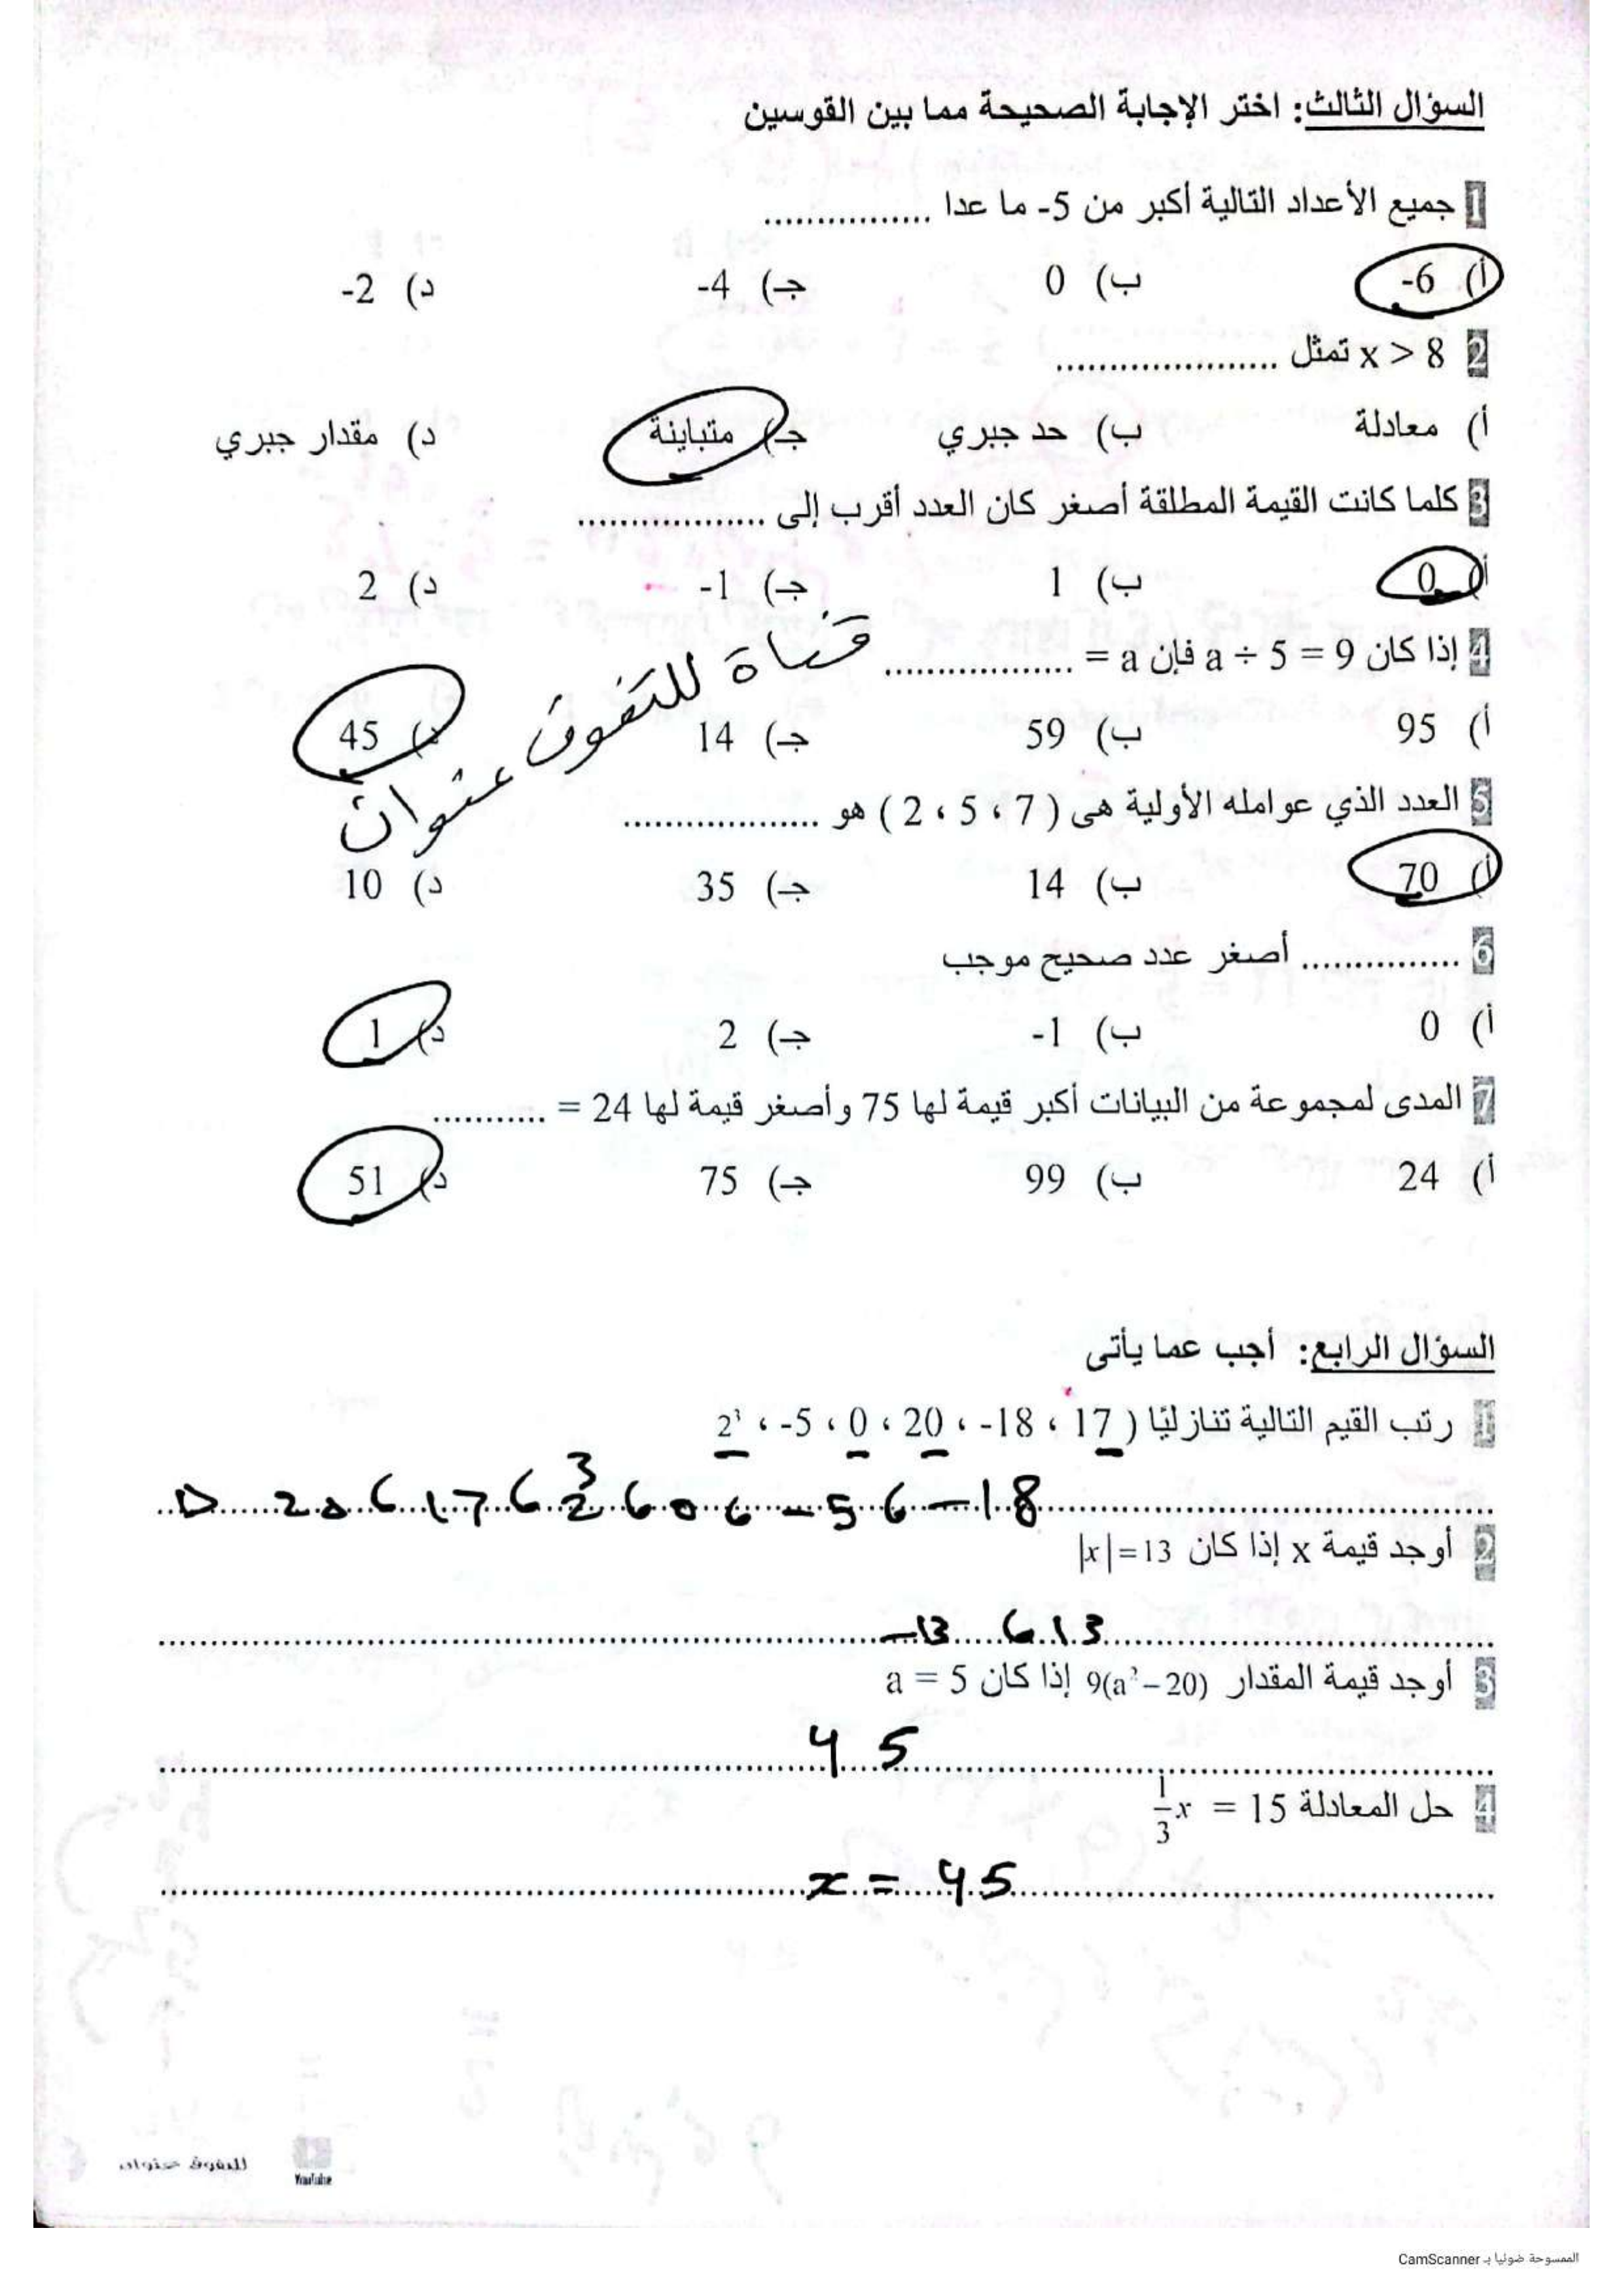 السؤال الثالث: اختر الإجابة الصحيحة مما بين القوسين
1 جميع الأعداد التالية أكبر من 5- ما عدا ................
أ) -6 ب) 0 جـ) -4 د) -2
2 x > 8 تمثل .....................
أ) معادلة ب) حد جبري جـ) متباينة د) مقدار جبري
3 كلما كانت القيمة المطلقة أصغر كان العدد أقرب إلى ..................
أ) 0 ب) 1 جـ) -1 د) 2
4 إذا كان a ÷ 5 = 9 فإن a = ..................
قناة للتفوق عنوان
أ) 95 ب) 59 جـ) 14 د) 45
5 العدد الذي عوامله الأولية هى ( 2 ، 5 ، 7 ) هو ...................
أ) 70 ب) 14 جـ) 35 د) 10
6 ............... أصغر عدد صحيح موجب
أ) 0 ب) -1 جـ) 2 د) 1
7 المدى لمجموعة من البيانات أكبر قيمة لها 75 وأصغر قيمة لها 24 = ...........
أ) 24 ب) 99 جـ) 75 د) 51
السؤال الرابع: أجب عما يأتى
1 رتب القيم التالية تنازليًا ( 17 ، -18 ، 20 ، 0 ، -5 ، 2³
20 ، 17 ، 2³ ، 0 ، -5 ، -18
2 أوجد قيمة x إذا كان |x|=13
-13 ، 13
3 أوجد قيمة المقدار 9(a²–20) إذا كان a = 5
45
4 حل المعادلة 1/3 x = 15
x = 45
للتفوق عنوان
YouTube
الممسوحة ضوئيا بـ CamScanner